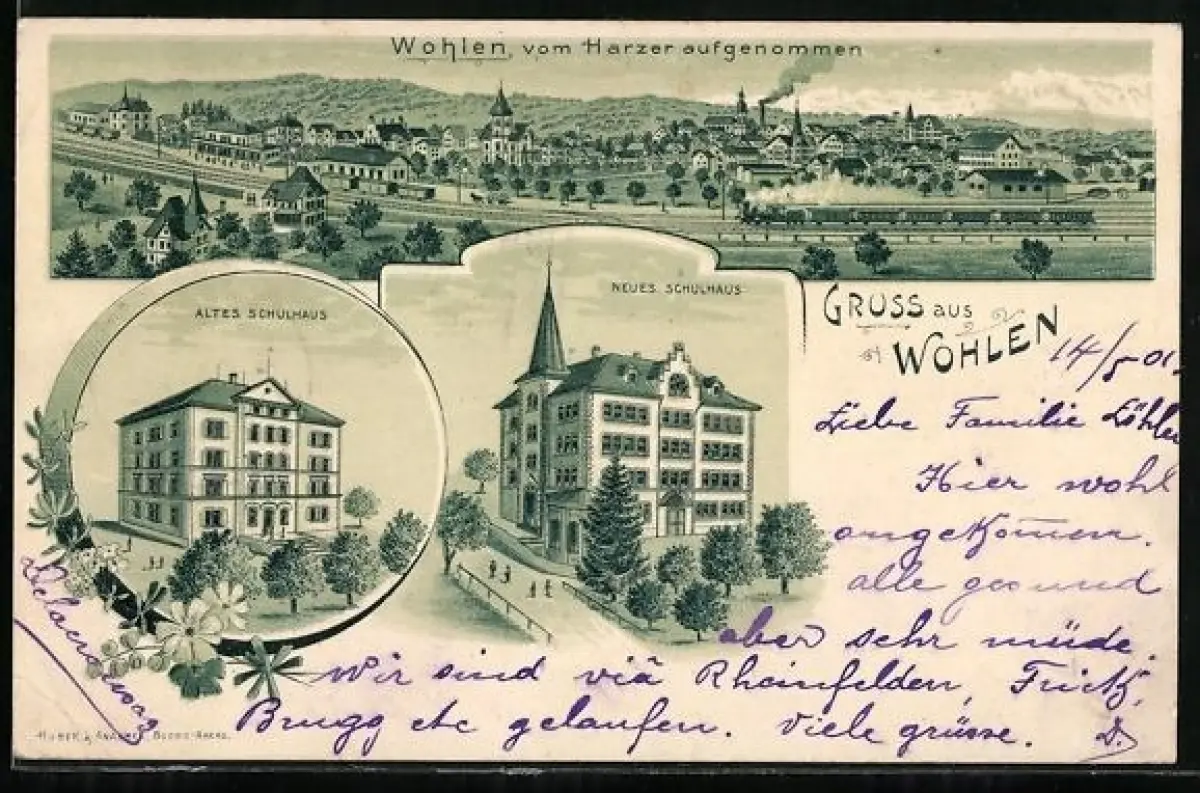 Wohlen, vom Harzer aufgenommen
ALTES SCHULHAUS
NEUES SCHULHAUS
GRUSS aus
WOHLEN
14/5 01.
Liebe Familie
Hier wohl
angekom̄en.
alle gesund
aber sehr müde.
Wir sind viâ Rheinfelden, Frick,
Brugg etc gelaufen. Viele grüsse.
D.